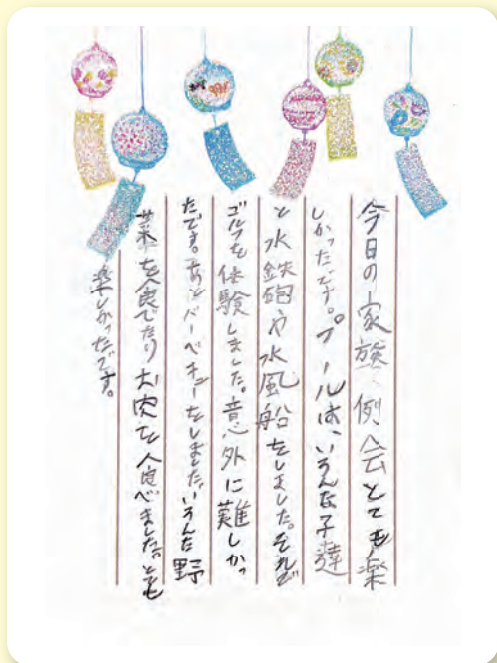 今日の家族例会とても楽
しかったです。プールは、いろんな子達
と水鉄砲や水風船をしました。それで
ゴルフを体験しました。意外に難しかっ
たです。あとバーベキューをしました。いろんな野
菜を食べたりお肉を食べました。とても
楽しかったです。